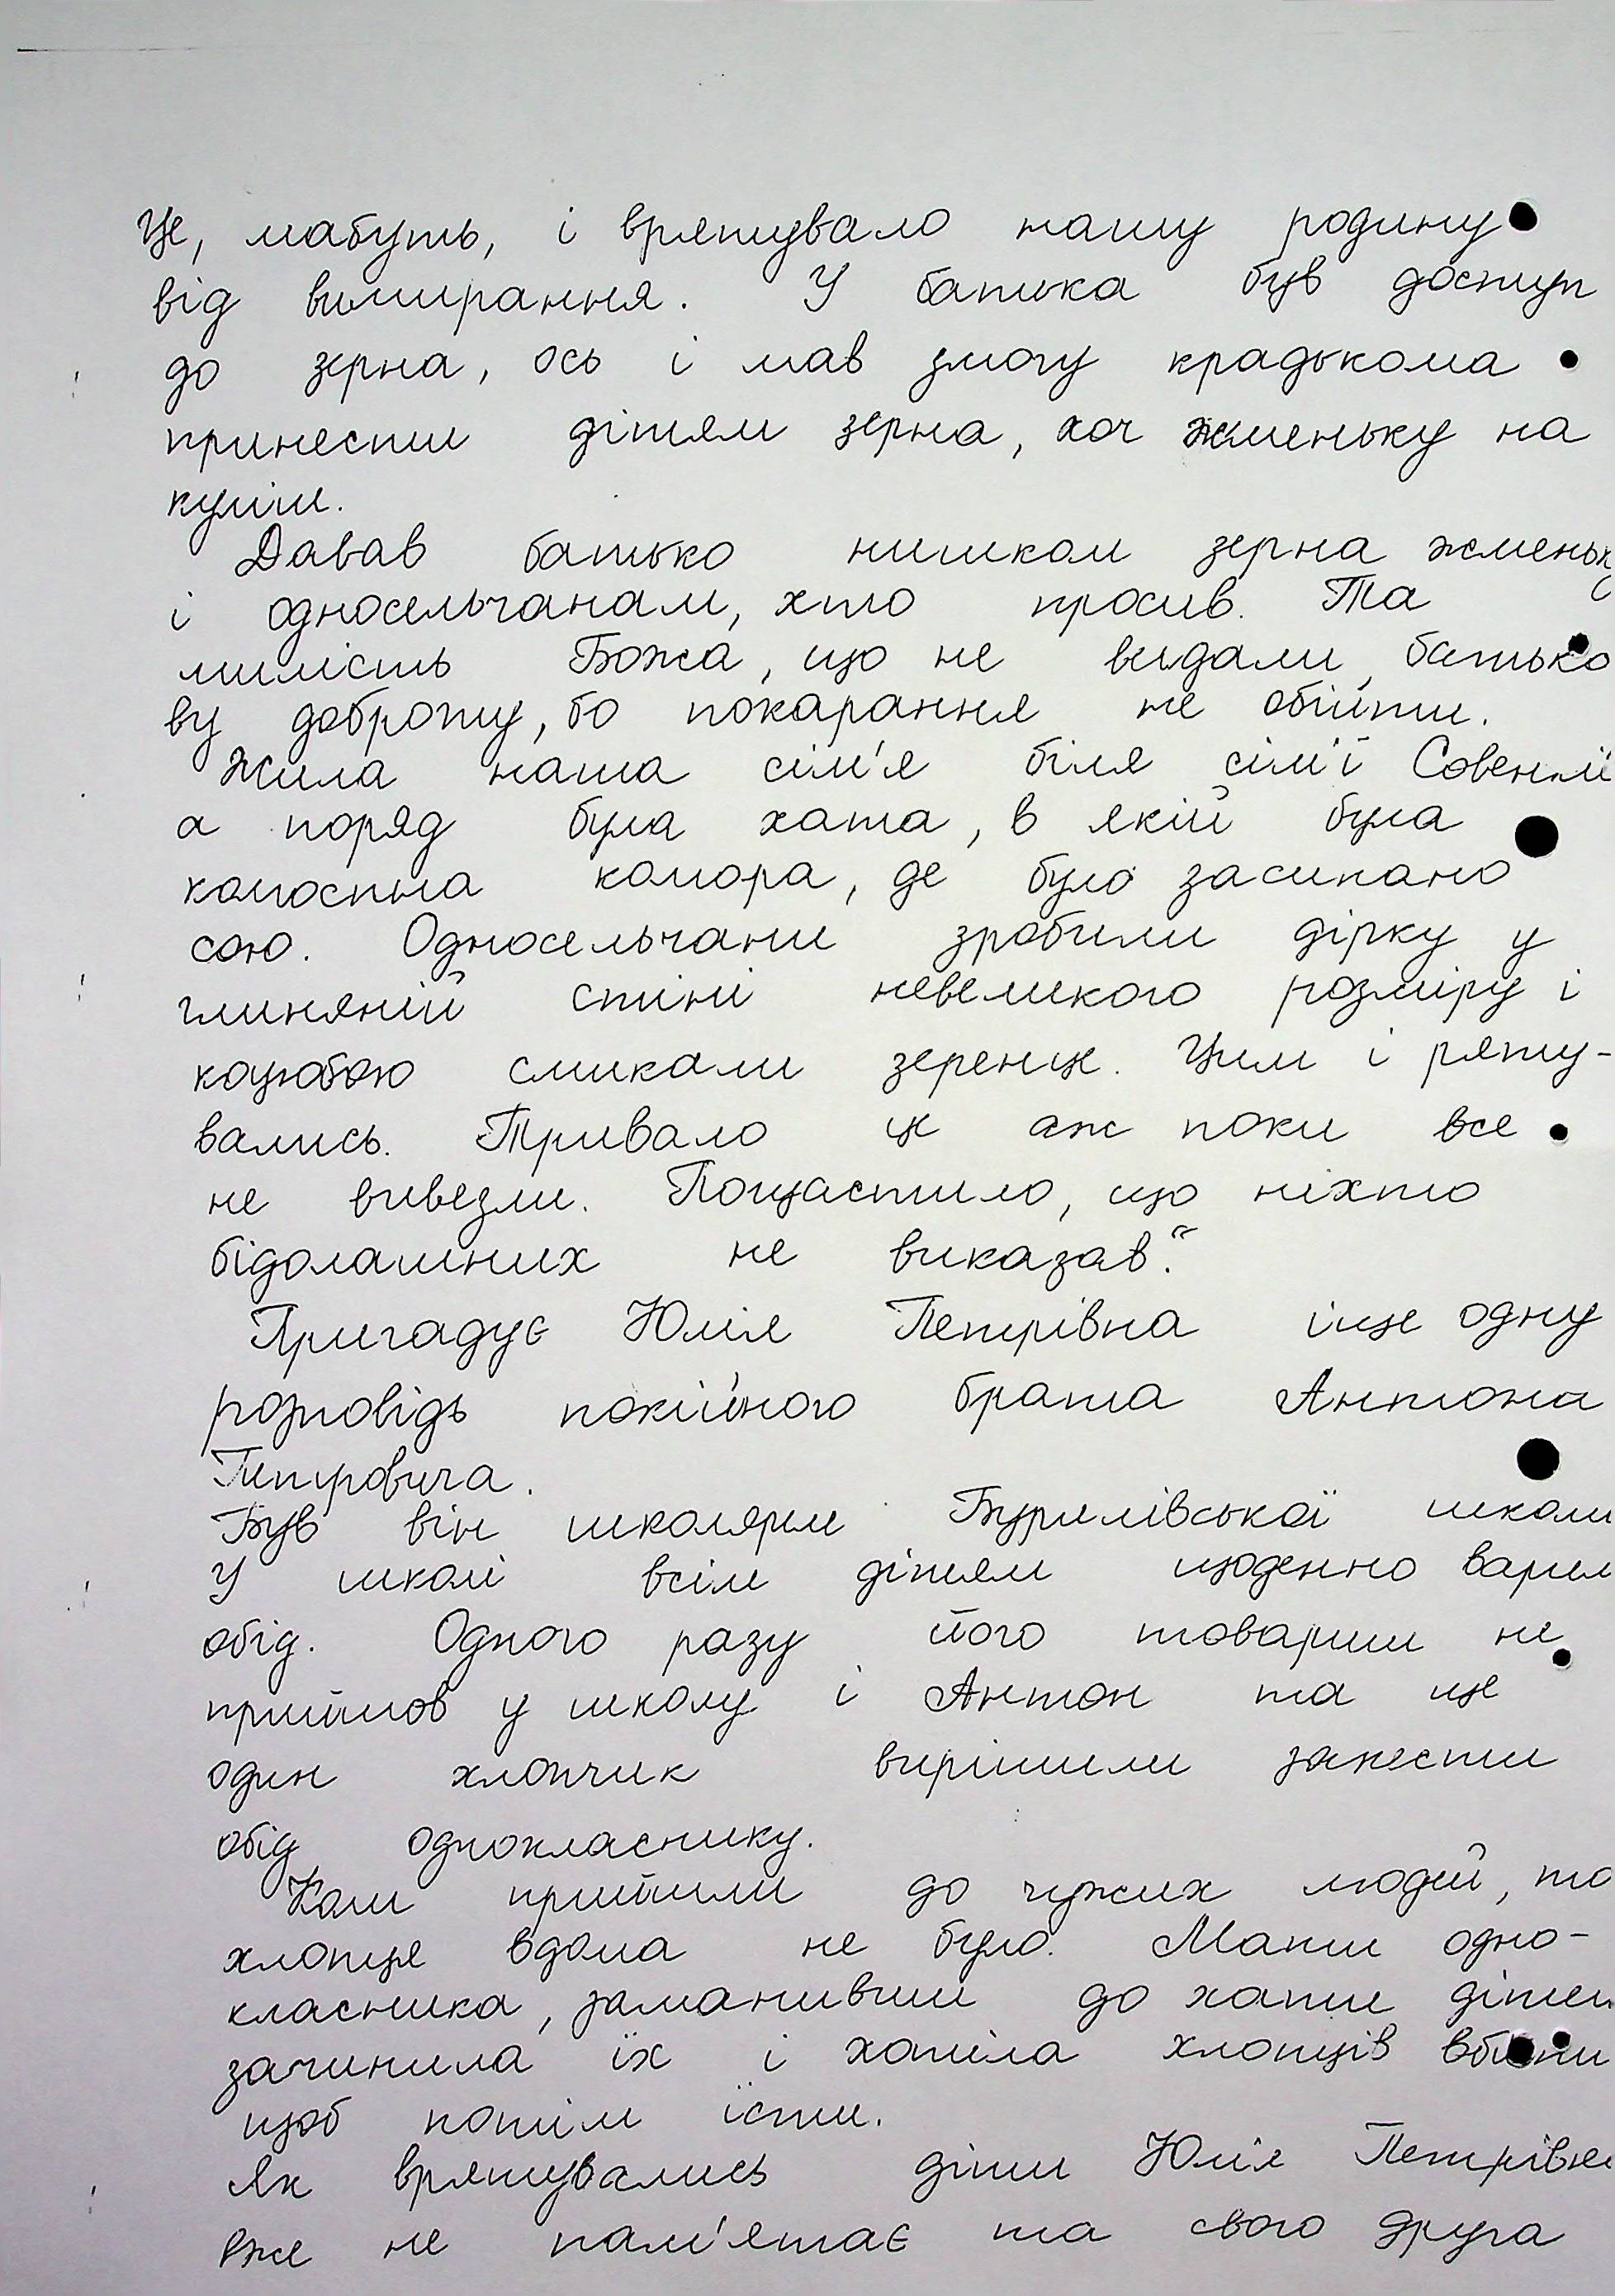 Це, мабуть, і врятувало нашу родину
від вимирання. У батька був доступ
до зерна, ось і мав змогу крадькома
принести дітям зерна, хоч жменьку на
куліш.
Давав батько нишком зерна жменьк
і односельчанам, хто просив. Та і
милість Божа, що не видали батько
ву доброту, бо покарання не обійти.
Жила наша сім'я біля сім'ї
а поряд була хата, в якій була
колгоспна комора, де було засипано
сою. Односельчани зробили дірку у
глиняній стіні невеликого розміру і
коцюбою смикали зеренце. Цим і ряту-
вались. Тривало це аж поки все
не вивезли. Пощастило, що ніхто
бідолашних не виказав".
Пригадує Юлія Петрівна іще одну
розповідь покійного брата Антона
Петровича.
Був він школярем школи
У школі всім дітям щоденно варил
обід. Одного разу його товариш не
прийшов у школу і Антон та ще
один хлопчик вирішили занести
обід однокласнику.
Коли прийшли до чужих людей, то
хлопця вдома не було. Мати одно-
класника, заманивши до хати дітей
зачинила їх і хотіла хлопців вбити
щоб потім їсти.
Як врятувались діти Юлія Петрівн
вже не пам'ятає та свого друга